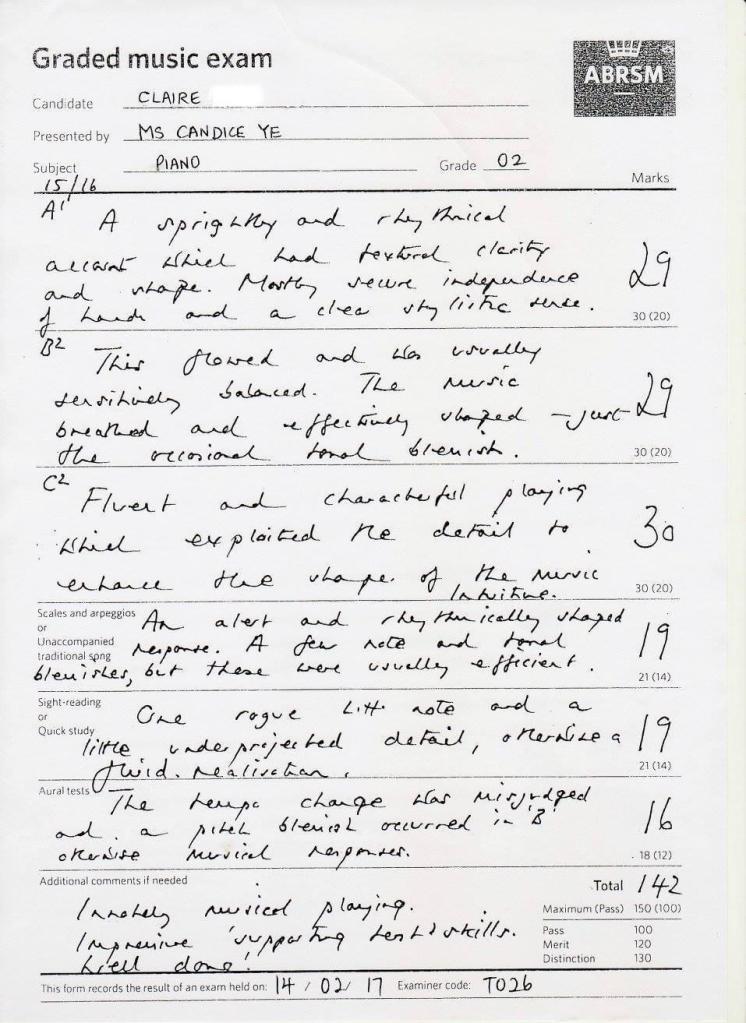 Graded music exam
ABRSM
Candidate CLAIRE
Presented by MS CANDICE YE
Subject PIANO Grade 02
15/16 Marks
A1 A sprightly and rhythmical
account which had textural clarity
and shape. Mostly secure independence
of hands and a clear stylistic sense. 29
30 (20)
B2 This flowed and was usually
sensitively balanced. The music
breathed and effectively shaped – just 29
the occasional tonal blemish. 30 (20)
C2 Fluent and characterful playing
which exploited the detail to 30
enhance the shape of the music 30 (20)
Intuitive.
Scales and arpeggios An alert and rhythmically shaped
or
Unaccompanied response. A few note and tonal 19
traditional song
blemishes, but these were usually efficient. 21 (14)
Sight-reading One rogue L.H. note and a
or
Quick study little underprojected detail, otherwise a 19
fluid realisation. 21 (14)
Aural tests The tempo change was misjudged
and a pitch blemish occurred in 'B' 16
otherwise musical responses. 18 (12)
Additional comments if needed Total 142
Innately musical playing. Maximum (Pass) 150 (100)
Impressive supporting tests/skills. Pass 100
Merit 120
Well done! Distinction 130
This form records the result of an exam held on: 14 / 02 / 17 Examiner code: T026